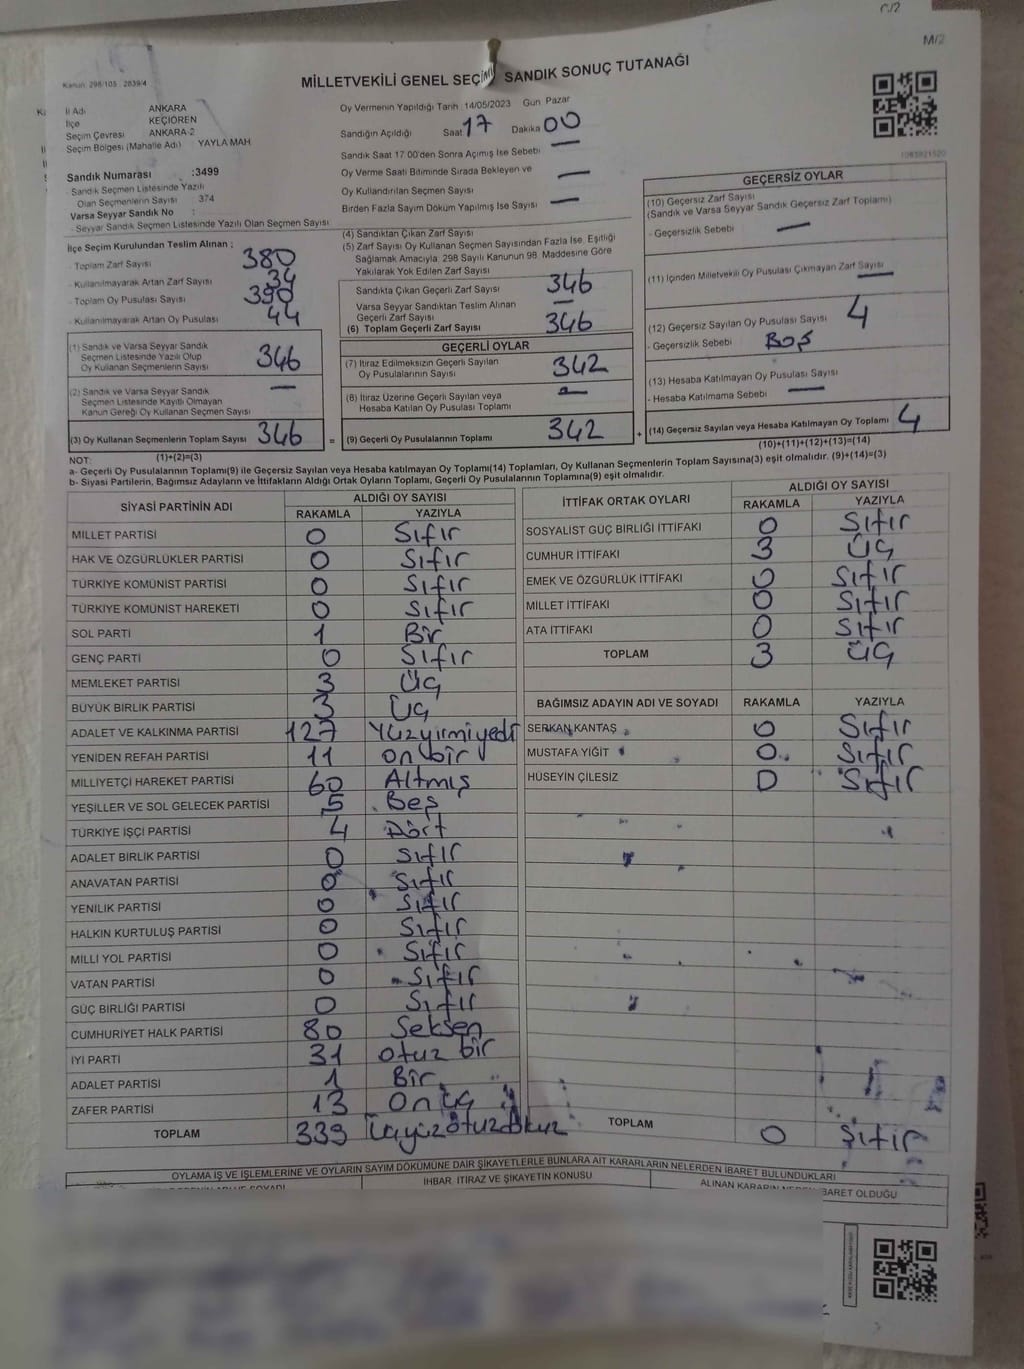 C/2
M/2
MİLLETVEKİLİ GENEL SEÇİMİ SANDIK SONUÇ TUTANAĞI
Kanun: 298/105 2839/4
İl Adı ANKARA
İlçe KEÇİÖREN
Seçim Çevresi ANKARA-2
Seçim Bölgesi (Mahalle Adı) YAYLA MAH
Sandık Numarası :3499
- Sandık Seçmen Listesinde Yazılı
Olan Seçmenlerin Sayısı 374
Varsa Seyyar Sandık No :
- Seyyar Sandık Seçmen Listesinde Yazılı Olan Seçmen Sayısı
Oy Vermenin Yapıldığı Tarih :14/05/2023 Gün: Pazar
Sandığın Açıldığı Saat 17 Dakika 00
Sandık Saat 17.00'den Sonra Açılmış İse Sebebi —
Oy Verme Saati Bitiminde Sırada Bekleyen ve
Oy Kullandırılan Seçmen Sayısı —
Birden Fazla Sayım Döküm Yapılmış İse Sayısı —
İlçe Seçim Kurulundan Teslim Alınan ;
- Toplam Zarf Sayısı 380
- Kullanılmayarak Artan Zarf Sayısı 34
- Toplam Oy Pusulası Sayısı 390
- Kullanılmayarak Artan Oy Pusulası 44
(1) Sandık ve Varsa Seyyar Sandık
Seçmen Listesinde Yazılı Olup
Oy Kullanan Seçmenlerin Sayısı 346
(2) Sandık ve Varsa Seyyar Sandık
Seçmen Listesinde Kayıtlı Olmayan
Kanun Gereği Oy Kullanan Seçmen Sayısı —
(3) Oy Kullanan Seçmenlerin Toplam Sayısı 346
(4) Sandıktan Çıkan Zarf Sayısı
(5) Zarf Sayısı Oy Kullanan Seçmen Sayısından Fazla İse, Eşitliği
Sağlamak Amacıyla, 298 Sayılı Kanunun 98. Maddesine Göre
Yakılarak Yok Edilen Zarf Sayısı
Sandıkta Çıkan Geçerli Zarf Sayısı 346
Varsa Seyyar Sandıktan Teslim Alınan
Geçerli Zarf Sayısı —
(6) Toplam Geçerli Zarf Sayısı 346
GEÇERLİ OYLAR
(7) İtiraz Edilmeksizin Geçerli Sayılan
Oy Pusulalarının Sayısı 342
(8) İtiraz Üzerine Geçerli Sayılan veya
Hesaba Katılan Oy Pusulası Toplamı —
= (9) Geçerli Oy Pusulalarının Toplamı 342 +
1083921520
GEÇERSİZ OYLAR
(10) Geçersiz Zarf Sayısı
(Sandık ve Varsa Seyyar Sandık Geçersiz Zarf Toplamı)
- Geçersizlik Sebebi —
(11) İçinden Milletvekili Oy Pusulası Çıkmayan Zarf Sayısı —
(12) Geçersiz Sayılan Oy Pusulası Sayısı 4
- Geçersizlik Sebebi BOŞ
(13) Hesaba Katılmayan Oy Pusulası Sayısı
- Hesaba Katılmama Sebebi —
(14) Geçersiz Sayılan veya Hesaba Katılmayan Oy Toplamı 4
NOT: (1)+(2)=(3)
(10)+(11)+(12)+(13)=(14)
a- Geçerli Oy Pusulalarının Toplamı(9) ile Geçersiz Sayılan veya Hesaba katılmayan Oy Toplamı(14) Toplamları, Oy Kullanan Seçmenlerin Toplam Sayısına(3) eşit olmalıdır. (9)+(14)=(3)
b- Siyasi Partilerin, Bağımsız Adayların ve İttifakların Aldığı Ortak Oyların Toplamı, Geçerli Oy Pusulalarının Toplamına(9) eşit olmalıdır.
SİYASİ PARTİNİN ADI ALDIĞI OY SAYISI
RAKAMLA YAZIYLA
MİLLET PARTİSİ 0 Sıfır
HAK VE ÖZGÜRLÜKLER PARTİSİ 0 Sıfır
TÜRKİYE KOMÜNİST PARTİSİ 0 Sıfır
TÜRKİYE KOMÜNİST HAREKETİ 0 Sıfır
SOL PARTİ 1 Bir
GENÇ PARTİ 0 Sıfır
MEMLEKET PARTİSİ 3 Üç
BÜYÜK BİRLİK PARTİSİ 3 Üç
ADALET VE KALKINMA PARTİSİ 127 Yüzyirmiyedi
YENİDEN REFAH PARTİSİ 11 on bir
MİLLİYETÇİ HAREKET PARTİSİ 60 Altmış
YEŞİLLER VE SOL GELECEK PARTİSİ 5 Beş
TÜRKİYE İŞÇİ PARTİSİ 4 Dört
ADALET BİRLİK PARTİSİ 0 Sıfır
ANAVATAN PARTİSİ 0 Sıfır
YENİLİK PARTİSİ 0 Sıfır
HALKIN KURTULUŞ PARTİSİ 0 Sıfır
MİLLİ YOL PARTİSİ 0 Sıfır
VATAN PARTİSİ 0 Sıfır
GÜÇ BİRLİĞİ PARTİSİ 0 Sıfır
CUMHURİYET HALK PARTİSİ 80 Seksen
İYİ PARTİ 31 otuz bir
ADALET PARTİSİ 1 Bir
ZAFER PARTİSİ 13 on üç
TOPLAM 339 Üçyüzotuzdokuz
İTTİFAK ORTAK OYLARI ALDIĞI OY SAYISI
RAKAMLA YAZIYLA
SOSYALİST GÜÇ BİRLİĞİ İTTİFAKI 0 Sıfır
CUMHUR İTTİFAKI 3 Üç
EMEK VE ÖZGÜRLÜK İTTİFAKI 0 Sıfır
MİLLET İTTİFAKI 0 Sıfır
ATA İTTİFAKI 0 Sıfır
TOPLAM 3 Üç
BAĞIMSIZ ADAYIN ADI VE SOYADI RAKAMLA YAZIYLA
SERKAN KANTAŞ 0 Sıfır
MUSTAFA YİĞİT 0 Sıfır
HÜSEYİN ÇİLESİZ 0 Sıfır
TOPLAM 0 Sıfır
OYLAMA İŞ VE İŞLEMLERİNE VE OYLARIN SAYIM DÖKÜMÜNE DAİR ŞİKAYETLERLE BUNLARA AİT KARARLARIN NELERDEN İBARET BULUNDUKLARI
İHBAR, İTİRAZ VE ŞİKAYETİN KONUSU
ALINAN KARARIN NEDEN İBARET OLDUĞU